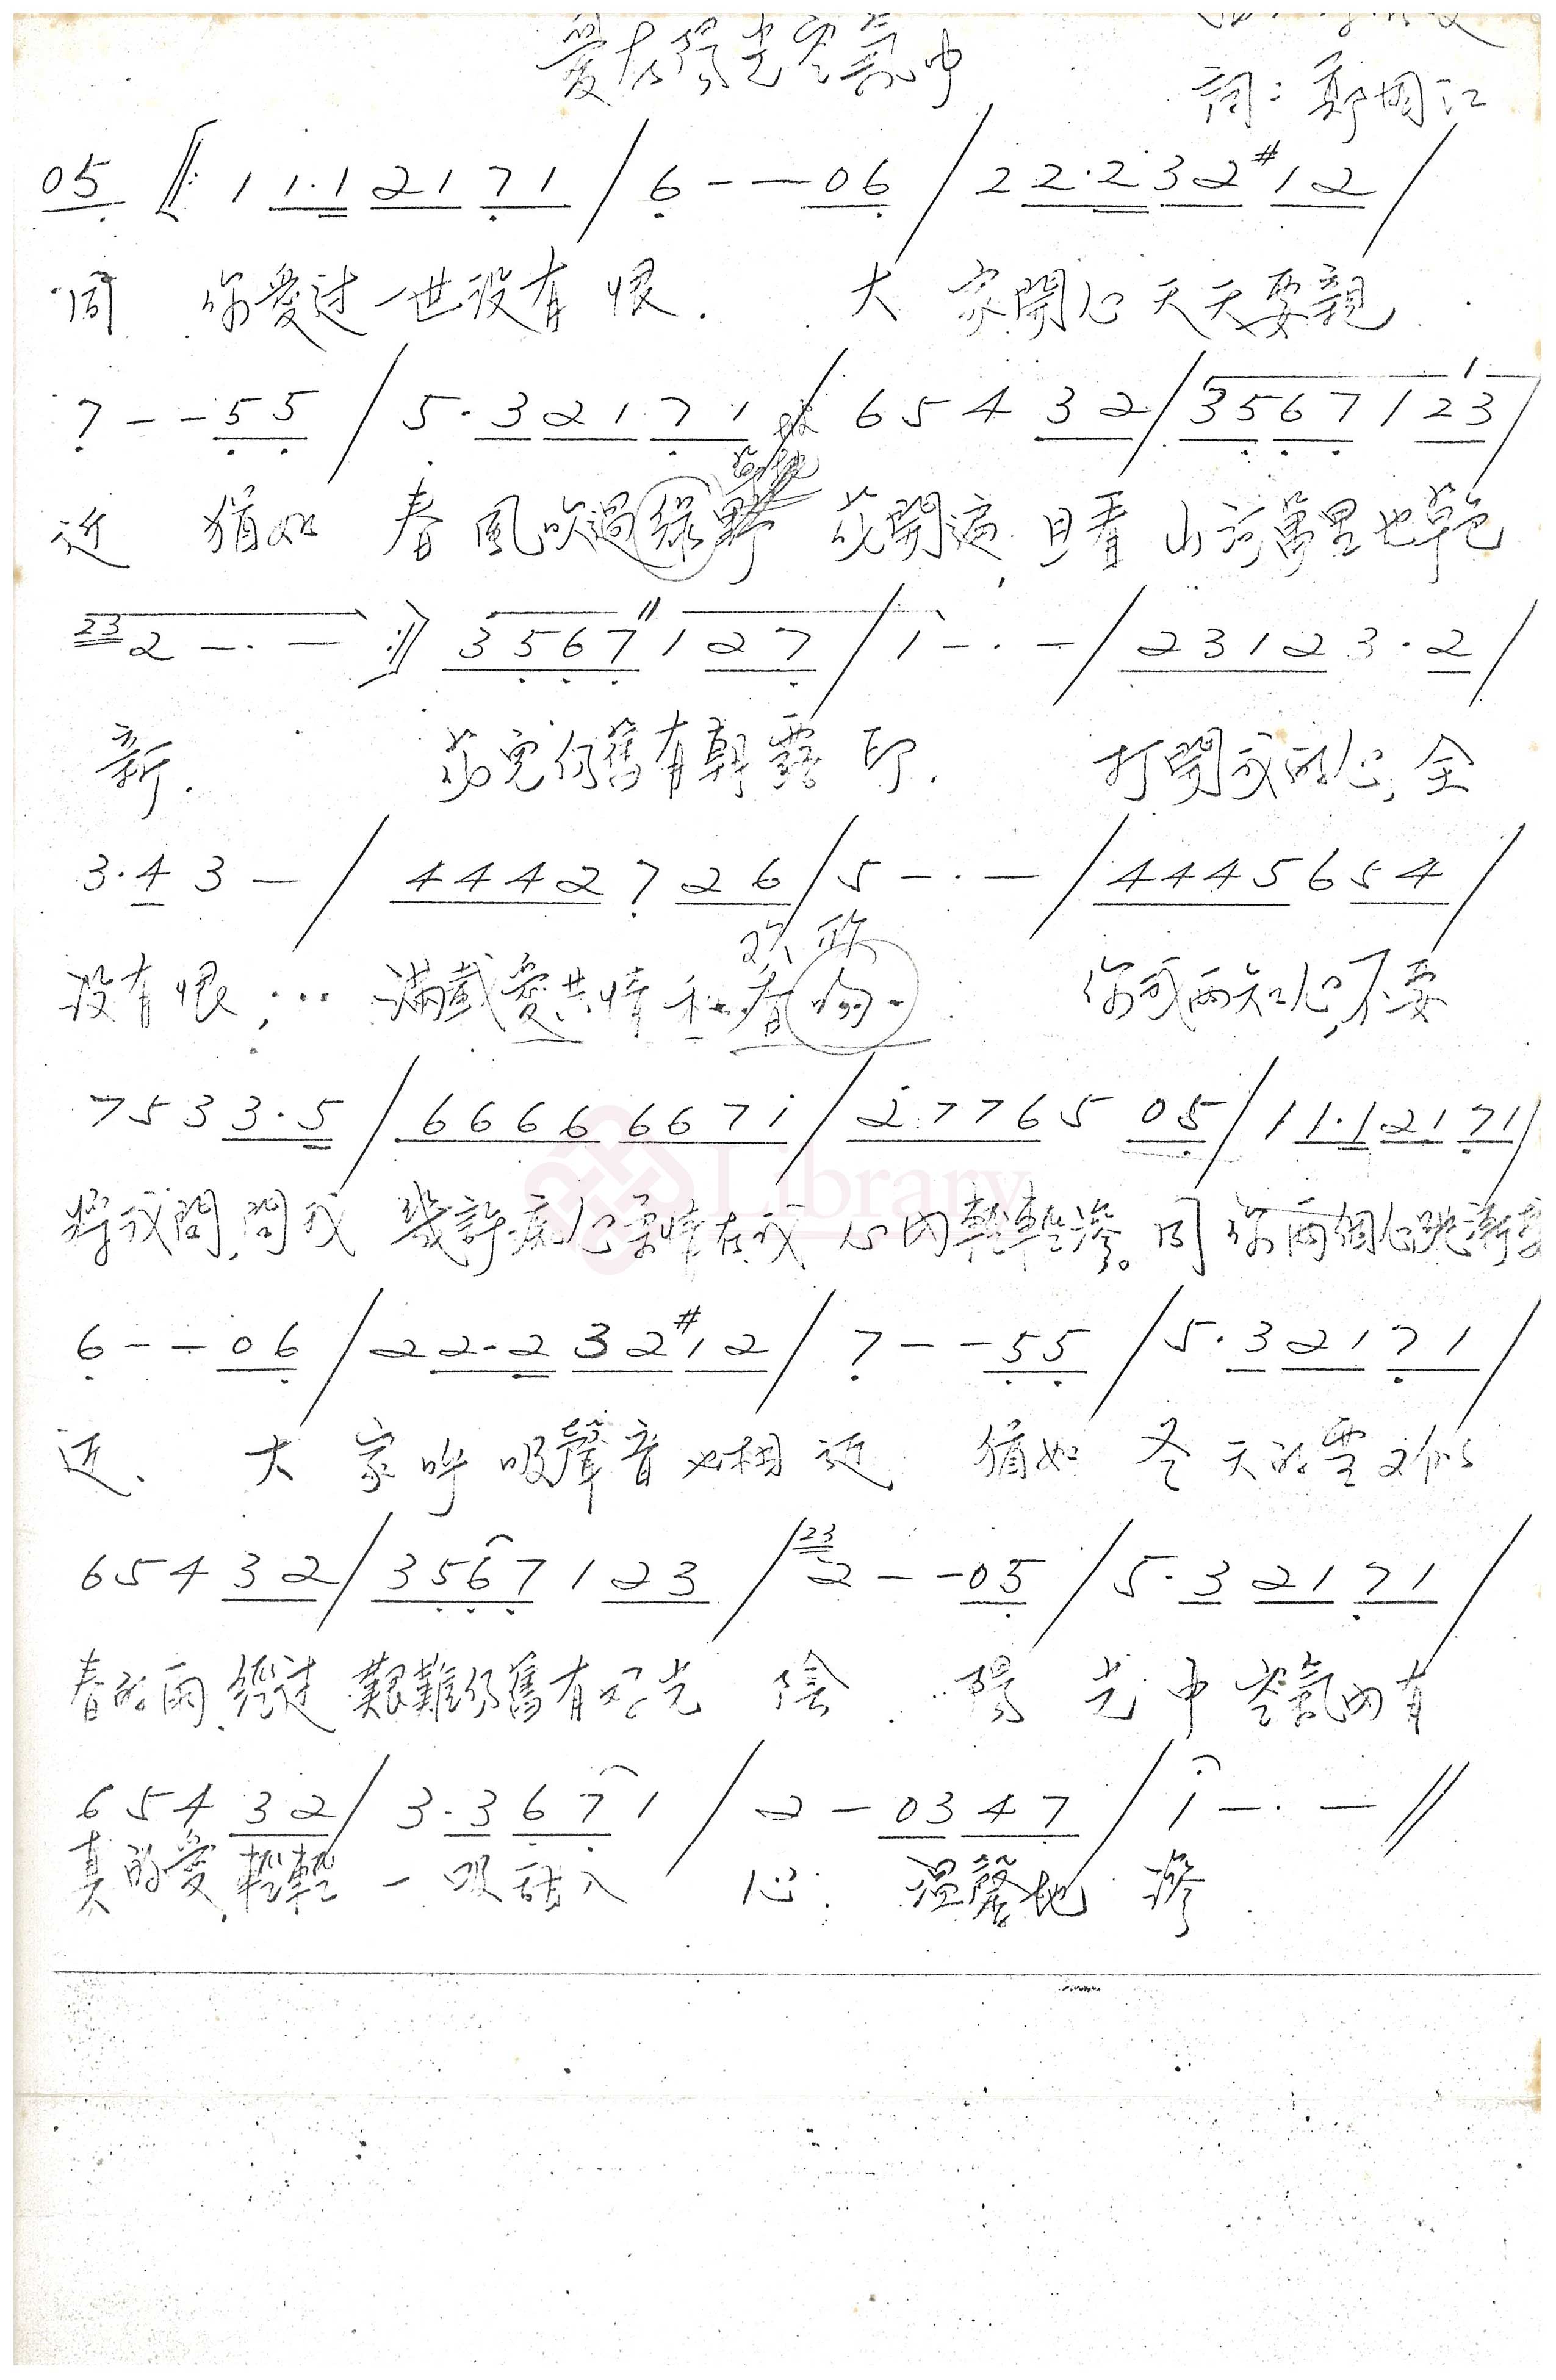 愛在陽光空氣中
詞：鄭國江
05 ‖: 1 1·1 21 71 / 6 - - 06 / 2 2·2 32 #12 /
同 你愛过一世没有恨. 大家開心天天要親
7 - - 55 / 5·3 21 71 / 654 32 / 3567 1 23 /
近 猶如 春風吹過綠野 花開遍 且看 山河萬里也草色
23 2 - · - :‖ 3567 1 27 / 1 - · - / 2312 3·2 /
新. 花兒仍舊有朝露印. 打開我的心, 全
3·4 3 - / 4442 7 26 / 5 - · - / 4445 6 54 /
没有恨, … 滿載愛共情和春
你我兩知心, 不要
7 5 3 3·5 / 6666 6671 / 2776 5 05 / 1 1·1 21 71 /
Library
將我問, 問我 幾許痴心柔情在我 心内輕輕滲。同 你兩個心跳漸接
6 - - 06 / 2 2·2 32 #12 / 7 - - 55 / 5·3 21 71 /
近、 大家呼吸聲音也相近 猶如 冬天的雪又似
654 32 / 3567 1 23 / 23 2 - - 05 / 5·3 21 71 /
春的雨, 經过 艱難仍舊有好光 陰. 陽光中空氣内有
654 32 / 3·3 67 1 / 2 - 03 47 / 1 - · - //
真的愛, 輕輕 一吸話入 心. 溫馨地 滲